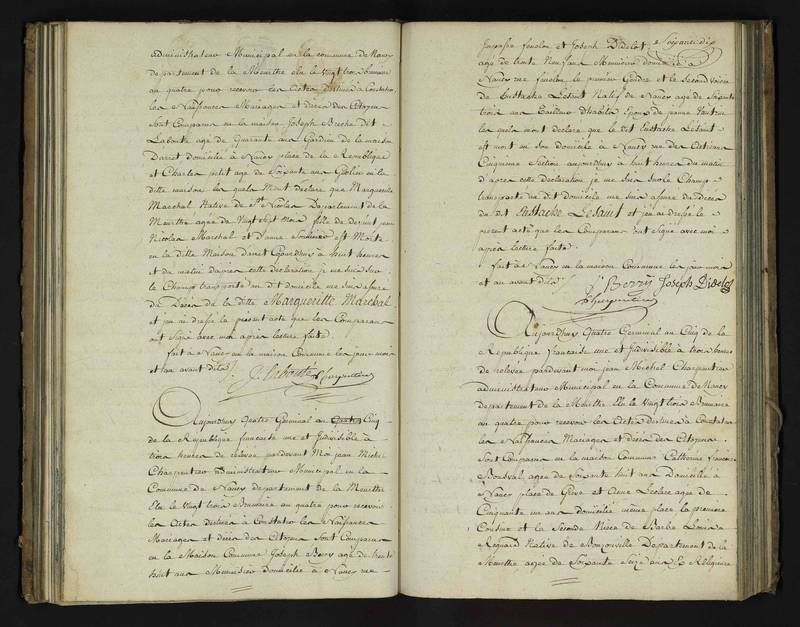 administrateur Municipal en la commune de Nancy
departement de la Meurthe elu le vingt trois brumaire
an quatre pour recevoir les actes destiné à Constater
les Naissances Mariages et décès des Citoyens
sont Comparus en la maison Joseph dit
Laboute age de quarante ans Gardien de la maison
Darret domicilié à Nancy place de la Republique
et Charles petit age de soixante ans Geolier en la
ditte maison les quels Mont declare que Marguerite
Marchal Native de St Nicolas Departement de la
Meurthe agée de vingt sept Mois fille de defunt jean
Nicolas Marchal et Danne est Morte
en la ditte Maison Darret cejourdhuy à huit heures
et du matin d'apres cette declaration je me suis sur
le Champ transporte au dit domicile me suis assuré
du Décès de la ditte Margueritte Marchal
et j'en ai dressé le présent acte que les Comparans
ont signé avec moi apres lecture faite
fait à Nancy en la maison Commune les jour mois
et an avant dits
J. Laboute Charpentier
Aujourdhuy quatre Germinal an Cinq
de la Republique francaise une et Indivisible à
trois heures de relevée pardevant Moi jean Michel
Charpentier administrateur Municipal en la
Commune de Nancy departement de la Meurthe
Elu le vingt trois Brumaire an quatre pour recevoir
les Actes destinés à Constater les Naissances
Mariages et décès des Citoyens sont Comparus
en la Maison Commune Joseph Berry age de trente
huit ans Menuisier domicilié à Nancy rue
Soixante dix
fenelon et Joseph Didelot
agé de trente Neuf ans Menuisier domicilié à
Nancy rue fenelon le premier Gendre et le second voisin
de Eustache Lesaint Natif de Nancy agé de soixante
trois ans Tailleur Dhabits Epoux de jeanne
les quels mont declaré que le dit Eustache Lesaint
est mort en son domicile à Nancy rue des Artisans
Cinquieme Section aujourdhuy à huit heures du matin
d'apres cette declaration je me suis sur le Champ
transporté au dit domicile me suis assuré du décès
du dit Eustache Lesaint et j'en ai dressé le
present acte que les Comparans ont signé avec moi
apres lecture faite
fait à Nancy en la maison Commune les jour mois
et an avant dits
J Berry Joseph Didelot
Charpentier
Aujourdhuy quatre Germinal an Cinq de la
Republique francaise une et Indivisible à trois heures
de relevée pardevant moi jean Michel Charpentier
administrateur Municipal en la Commune de Nancy
departement de la Meurthe Elu le vingt trois Brumaire
an quatre pour recevoir les Actes destinés à Constater
les Naissances Mariages et décès des Citoyens
sont Comparus en la maison Commune Catherine
agée de soixante huit ans Domiciliée à
Nancy place de Greve et Leclerc agée de
Cinquante un ans domiciliée même place la premiere
Cousine et la seconde Niece de Barbe Louise
Regnard Native de Bouzonville Departement de la
agée de soixante seize ans Ex Religieuse